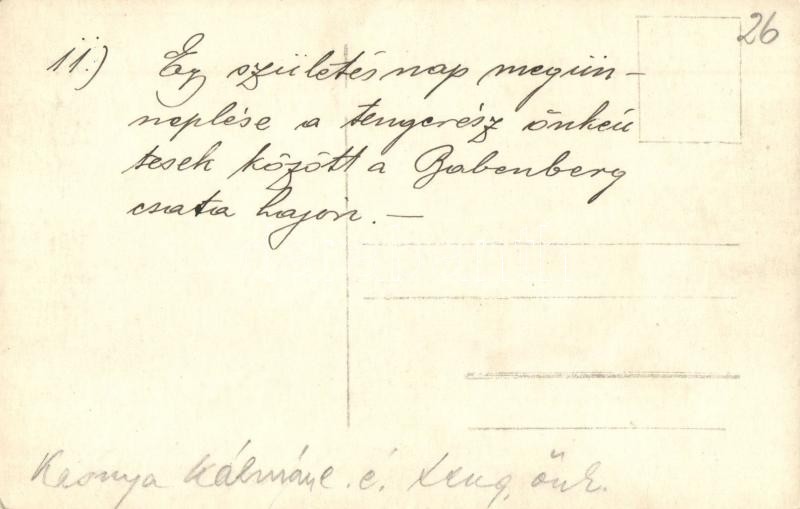 26
11.) Egy születésnap megün-
neplése a tengerész önkén
tesek között a Babenberg
csata hajón. —
Kálmán é. teng. önk.